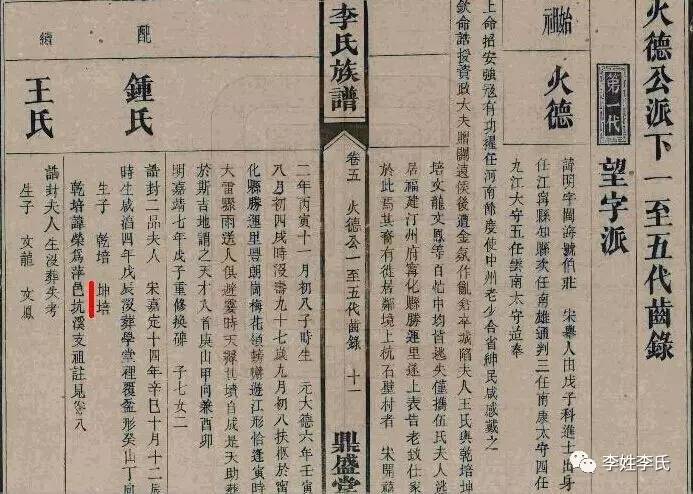 火德公派下一至五代齒錄
第一代
望字派
始祖
火德
諱丙字閩海號伯莊　宋舉人由戊子科進士出身
任江寧縣知縣次任南雄通判三任南康太守四任
九江大守五任雲南太守迨奉
上命招安強寇有功擢任河南節度使中州老少合省紳民咸感戴之
欽命誥授資政大夫贈關遠侯後遺金氛作亂
城陷夫人王氏與乾培坤
培文龍文鳳等百忙中均皆逃失僅攜伍氏夫人逃
居福建汀州府寧化縣勝運里遂上表告老致仕家
於此焉其裔有徙居鄰境上杭石壁村者　宋開禧
李氏族譜
卷五　火德公一至五代齒錄　十一
鼎盛堂
二年丙寅十一月初八子時生　元大德六年壬寅
八月初四戌時沒壽九十七歲九月初八扶柩於寧
化縣勝運里豐朗崗梅花領
遊江形恰逢寅時
大雷驟雨送人俱避
天
其墳自成是天助葬
於斯吉地謂之天才八首庚山甲向兼酉卯
明嘉靖七年戊子重修換碑　子七女二
配
鍾氏
誥封二品夫人　宋嘉定十四年辛巳十月十二
時生咸淳四年戊辰沒葬學堂裡覆盆形癸山丁向
生子　乾培　坤培
乾培諱榮爲萍邑抗溪支祖註見卷八
續
王氏
誥封夫人生沒葬失考
生子　文龍　文鳳
李姓李氏